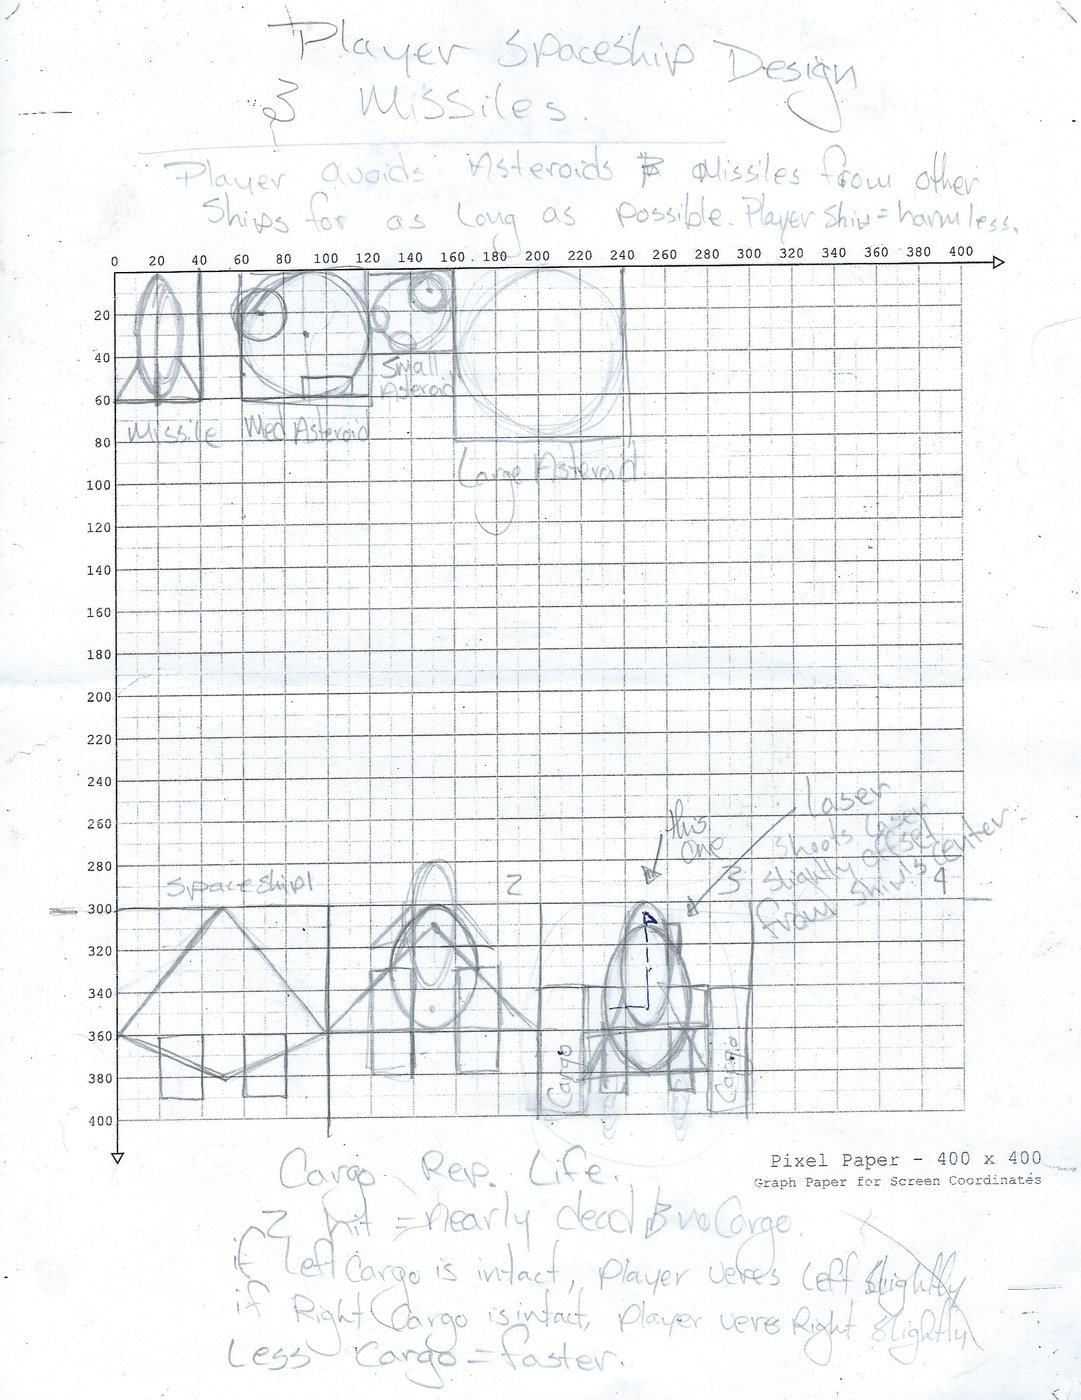 Player Spaceship Design
& Missiles.
Player avoids Asteroids & Missiles from other
Ships for as Long as possible. Player Ship = harmless.
0 20 40 60 80 100 120 140 160 180 200 220 240 260 280 300 320 340 360 380 400
20
40
60
80
100
120
140
160
180
200
220
240
260
280
300
320
340
360
380
400
Missile
Med Asteroid
Small
Asteroid
Large Asteroid
Spaceship1
2
3
4
this
one
Laser
Shoots Laser
Slightly offset
from Ship's center.
Cargo
Cargo
Pixel Paper - 400 x 400
Graph Paper for Screen Coordinates
Cargo Rep. Life.
2 hit = nearly dead & no Cargo.
if Left Cargo is intact, player veres Left Slightly
if Right Cargo is intact, player veres Right Slightly
Less Cargo = faster.